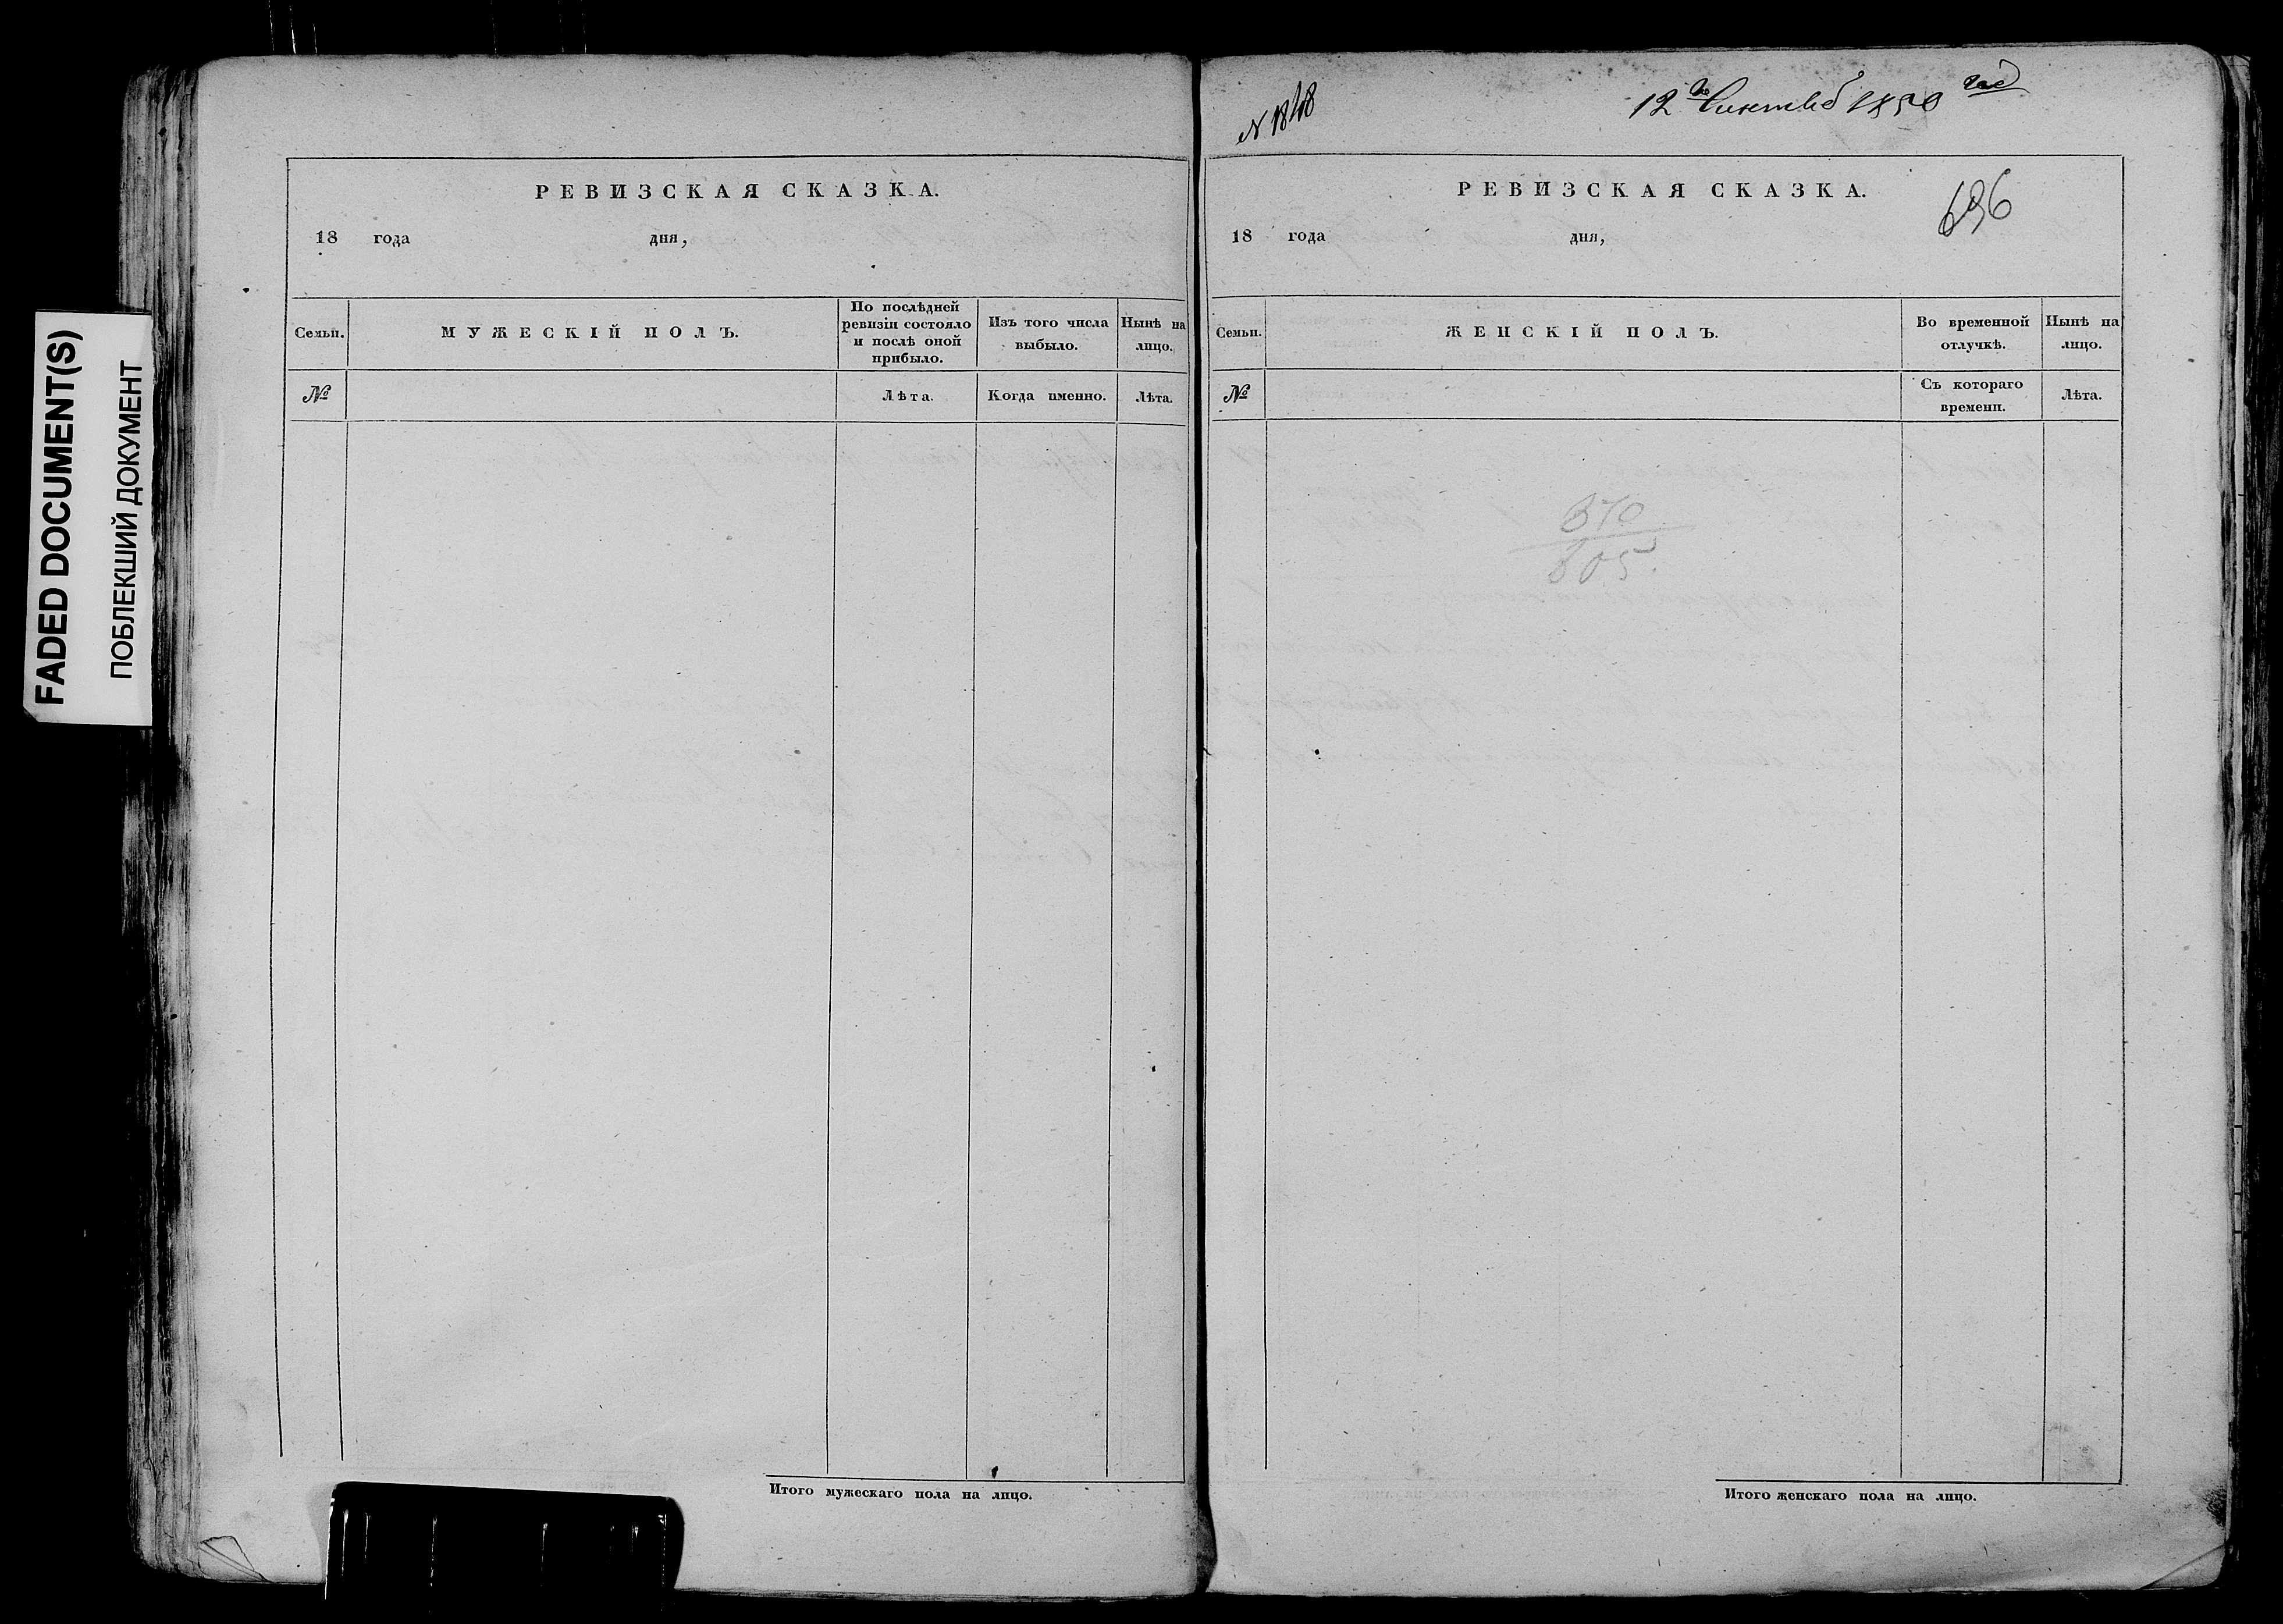 FADED DOCUMENT(S)
ПОБЛЕКШИЙ ДОКУМЕНТ
РЕВИЗСКАЯ СКАЗКА.
18 года дня,
Семьи.
МУЖЕСКІЙ ПОЛЪ.
По послѣдней
ревизіи состояло
и послѣ оной
прибыло.
Изъ того числа
выбыло.
Нынѣ на
лицо.
№
Лѣта.
Когда именно.
Лѣта.
Итого мужескаго пола на лицо.
N 1848
12 1850
РЕВИЗСКАЯ СКАЗКА.
696
18 года дня,
Семьи.
ЖЕНСКІЙ ПОЛЪ.
Во временной
отлучкѣ.
Нынѣ на
лицо.
№
Съ котораго
времени.
Лѣта.
370
805.
Итого женскаго пола на лицо.